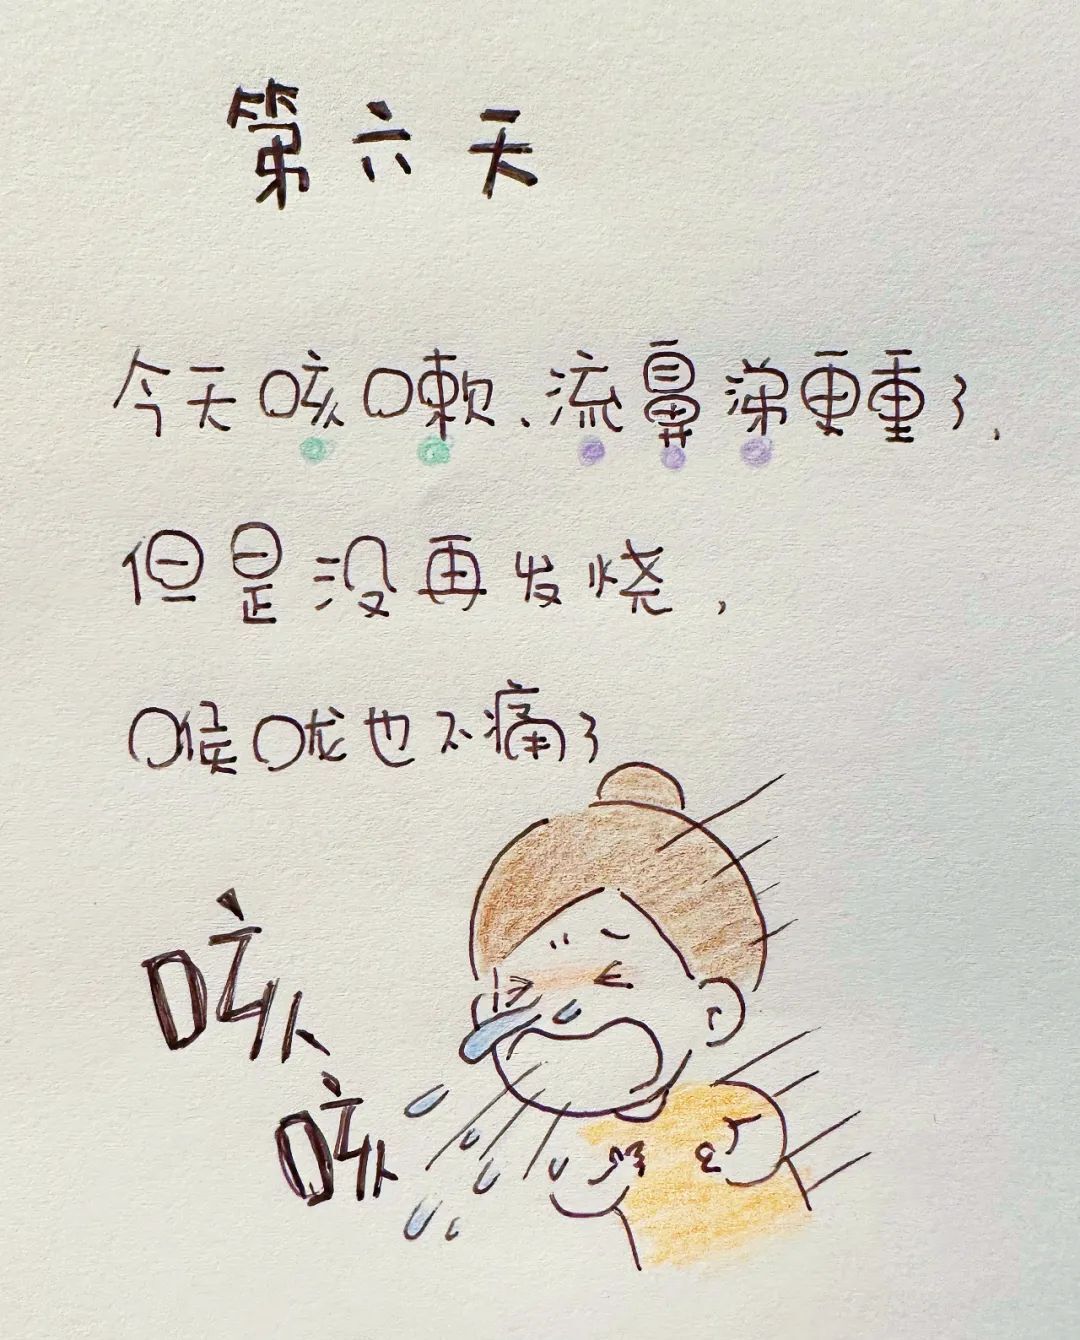 第六天
今天咳嗽、流鼻涕更重了，
但是没再发烧，
喉咙也不痛了
咳
咳